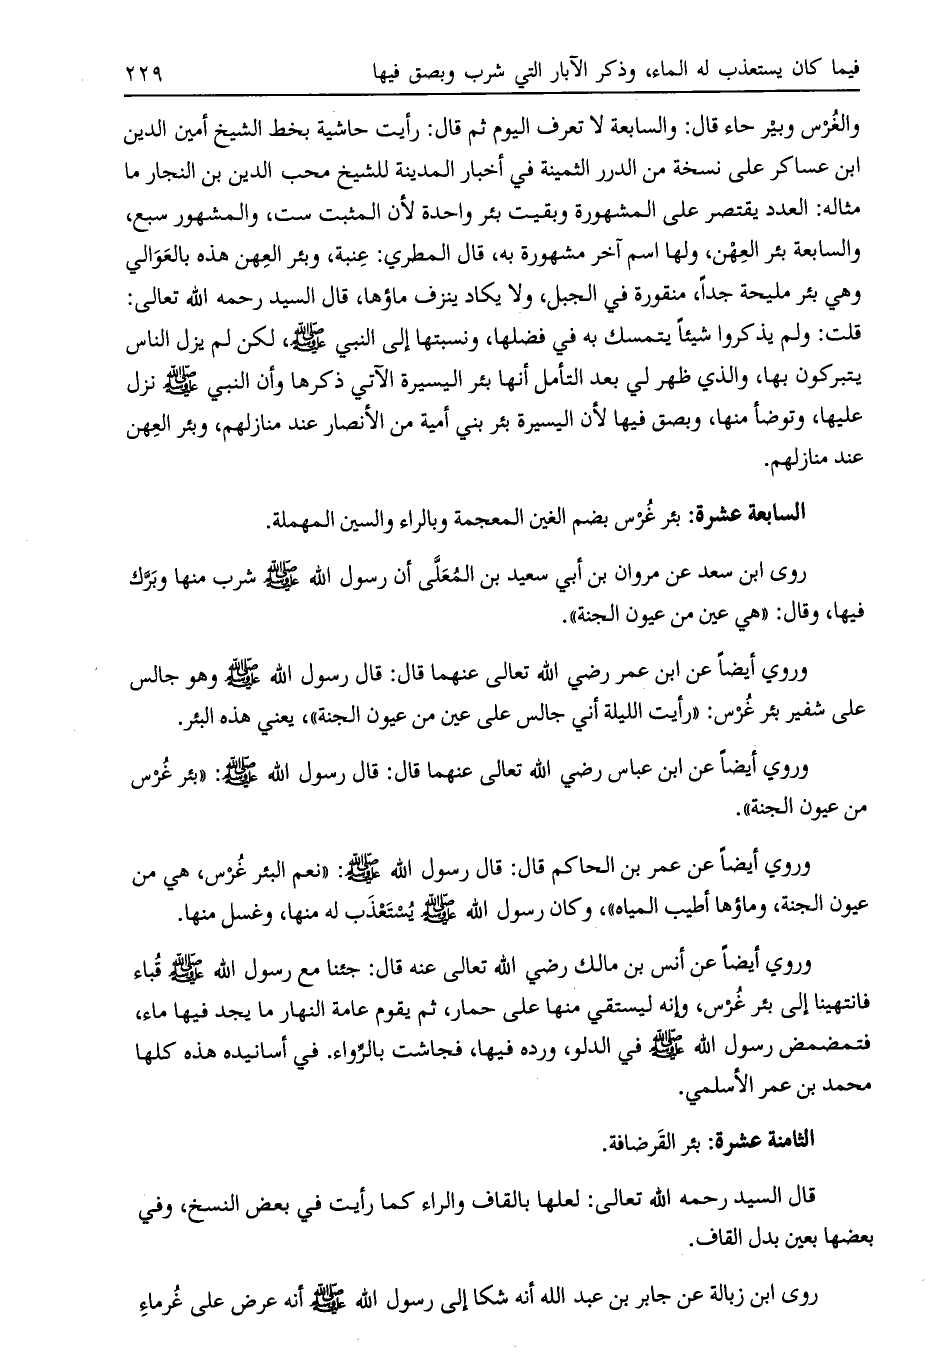 فيما كان يستعذب له الماء، وذكر الآبار التي شرب وبصق فيها ٢٢٩
والغُرْس وبيْر حاء قال: والسابعة لا تعرف اليوم ثم قال: رأيت حاشية بخط الشيخ أمين الدين
ابن عساكر على نسخة من الدرر الثمينة في أخبار المدينة للشيخ محب الدين بن النجار ما
مثاله: العدد يقتصر على المشهورة وبقيت بئر واحدة لأن المثبت ست، والمشهور سبع،
والسابعة بئر العِهْن، ولها اسم آخر مشهورة به، قال المطري: عِنبة، وبئر العِهن هذه بالعَوَالي
وهي بئر مليحة جداً، منقورة في الجبل، ولا يكاد ينزف ماؤها، قال السيد رحمه الله تعالى:
قلت: ولم يذكروا شيئاً يتمسك به في فضلها، ونسبتها إلى النبي ﷺ، لكن لم يزل الناس
يتبركون بها، والذي ظهر لي بعد التأمل أنها بئر اليسيرة الآتي ذكرها وأن النبي ﷺ نزل
عليها، وتوضأ منها، وبصق فيها لأن اليسيرة بئر بني أمية من الأنصار عند منازلهم، وبئر العِهن
عند منازلهم.
السابعة عشرة: بئر غُرْس بضم الغين المعجمة وبالراء والسين المهملة.
روى ابن سعد عن مروان بن أبي سعيد بن المُعَلَّى أن رسول الله ﷺ شرب منها وبَرَّك
فيها، وقال: «هي عين من عيون الجنة».
وروي أيضاً عن ابن عمر رضي الله تعالى عنهما قال: قال رسول الله ﷺ وهو جالس
على شفير بئر غُرْس: «رأيت الليلة أني جالس على عين من عيون الجنة»، يعني هذه البئر.
وروي أيضاً عن ابن عباس رضي الله تعالى عنهما قال: قال رسول الله ﷺ: «بئر غُرْس
من عيون الجنة».
وروي أيضاً عن عمر بن الحاكم قال: قال رسول الله ﷺ: «نعم البئر غُرْس، هي من
عيون الجنة، وماؤها أطيب المياه»، وكان رسول الله ﷺ يُسْتَعْذَب له منها، وغسل منها.
وروي أيضاً عن أنس بن مالك رضي الله تعالى عنه قال: جئنا مع رسول الله ﷺ قُباء
فانتهينا إلى بئر غُرْس، وإنه ليستقي منها على حمار، ثم يقوم عامة النهار ما يجد فيها ماء،
فتمضمض رسول الله ﷺ في الدلو، ورده فيها، فجاشت بالرِّواء. في أسانيده هذه كلها
محمد بن عمر الأسلمي.
الثامنة عشرة: بئر القَرضافة.
قال السيد رحمه الله تعالى: لعلها بالقاف والراء كما رأيت في بعض النسخ، وفي
بعضها بعين بدل القاف.
روى ابن زبالة عن جابر بن عبد الله أنه شكا إلى رسول الله ﷺ أنه عرض على غُرماءِ